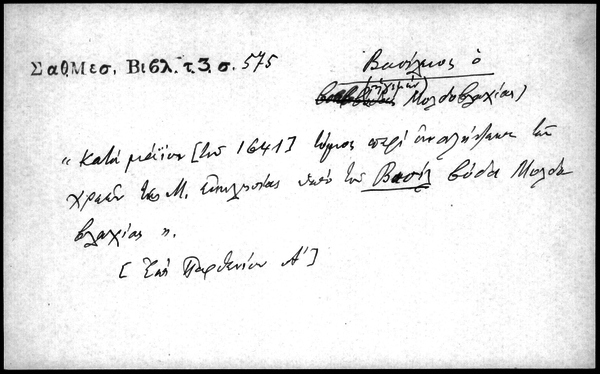 Σαθ Μεσ. Βιβλ. τ. 3, σ. 575
Βασίλειος ὁ
(ἡγεμὼν) Μολδοβλαχίας)
« Κατὰ μάϊον [τοῦ 1641] τόμος περὶ ἀναλήψεως τῶν
χρεῶν τῆς Μ. ἐκκλησίας ὑπὸ τοῦ Βασιλ βόδα Μολδο
βλαχίας ».
[ Ἐπὶ Παρθενίου Α' ]